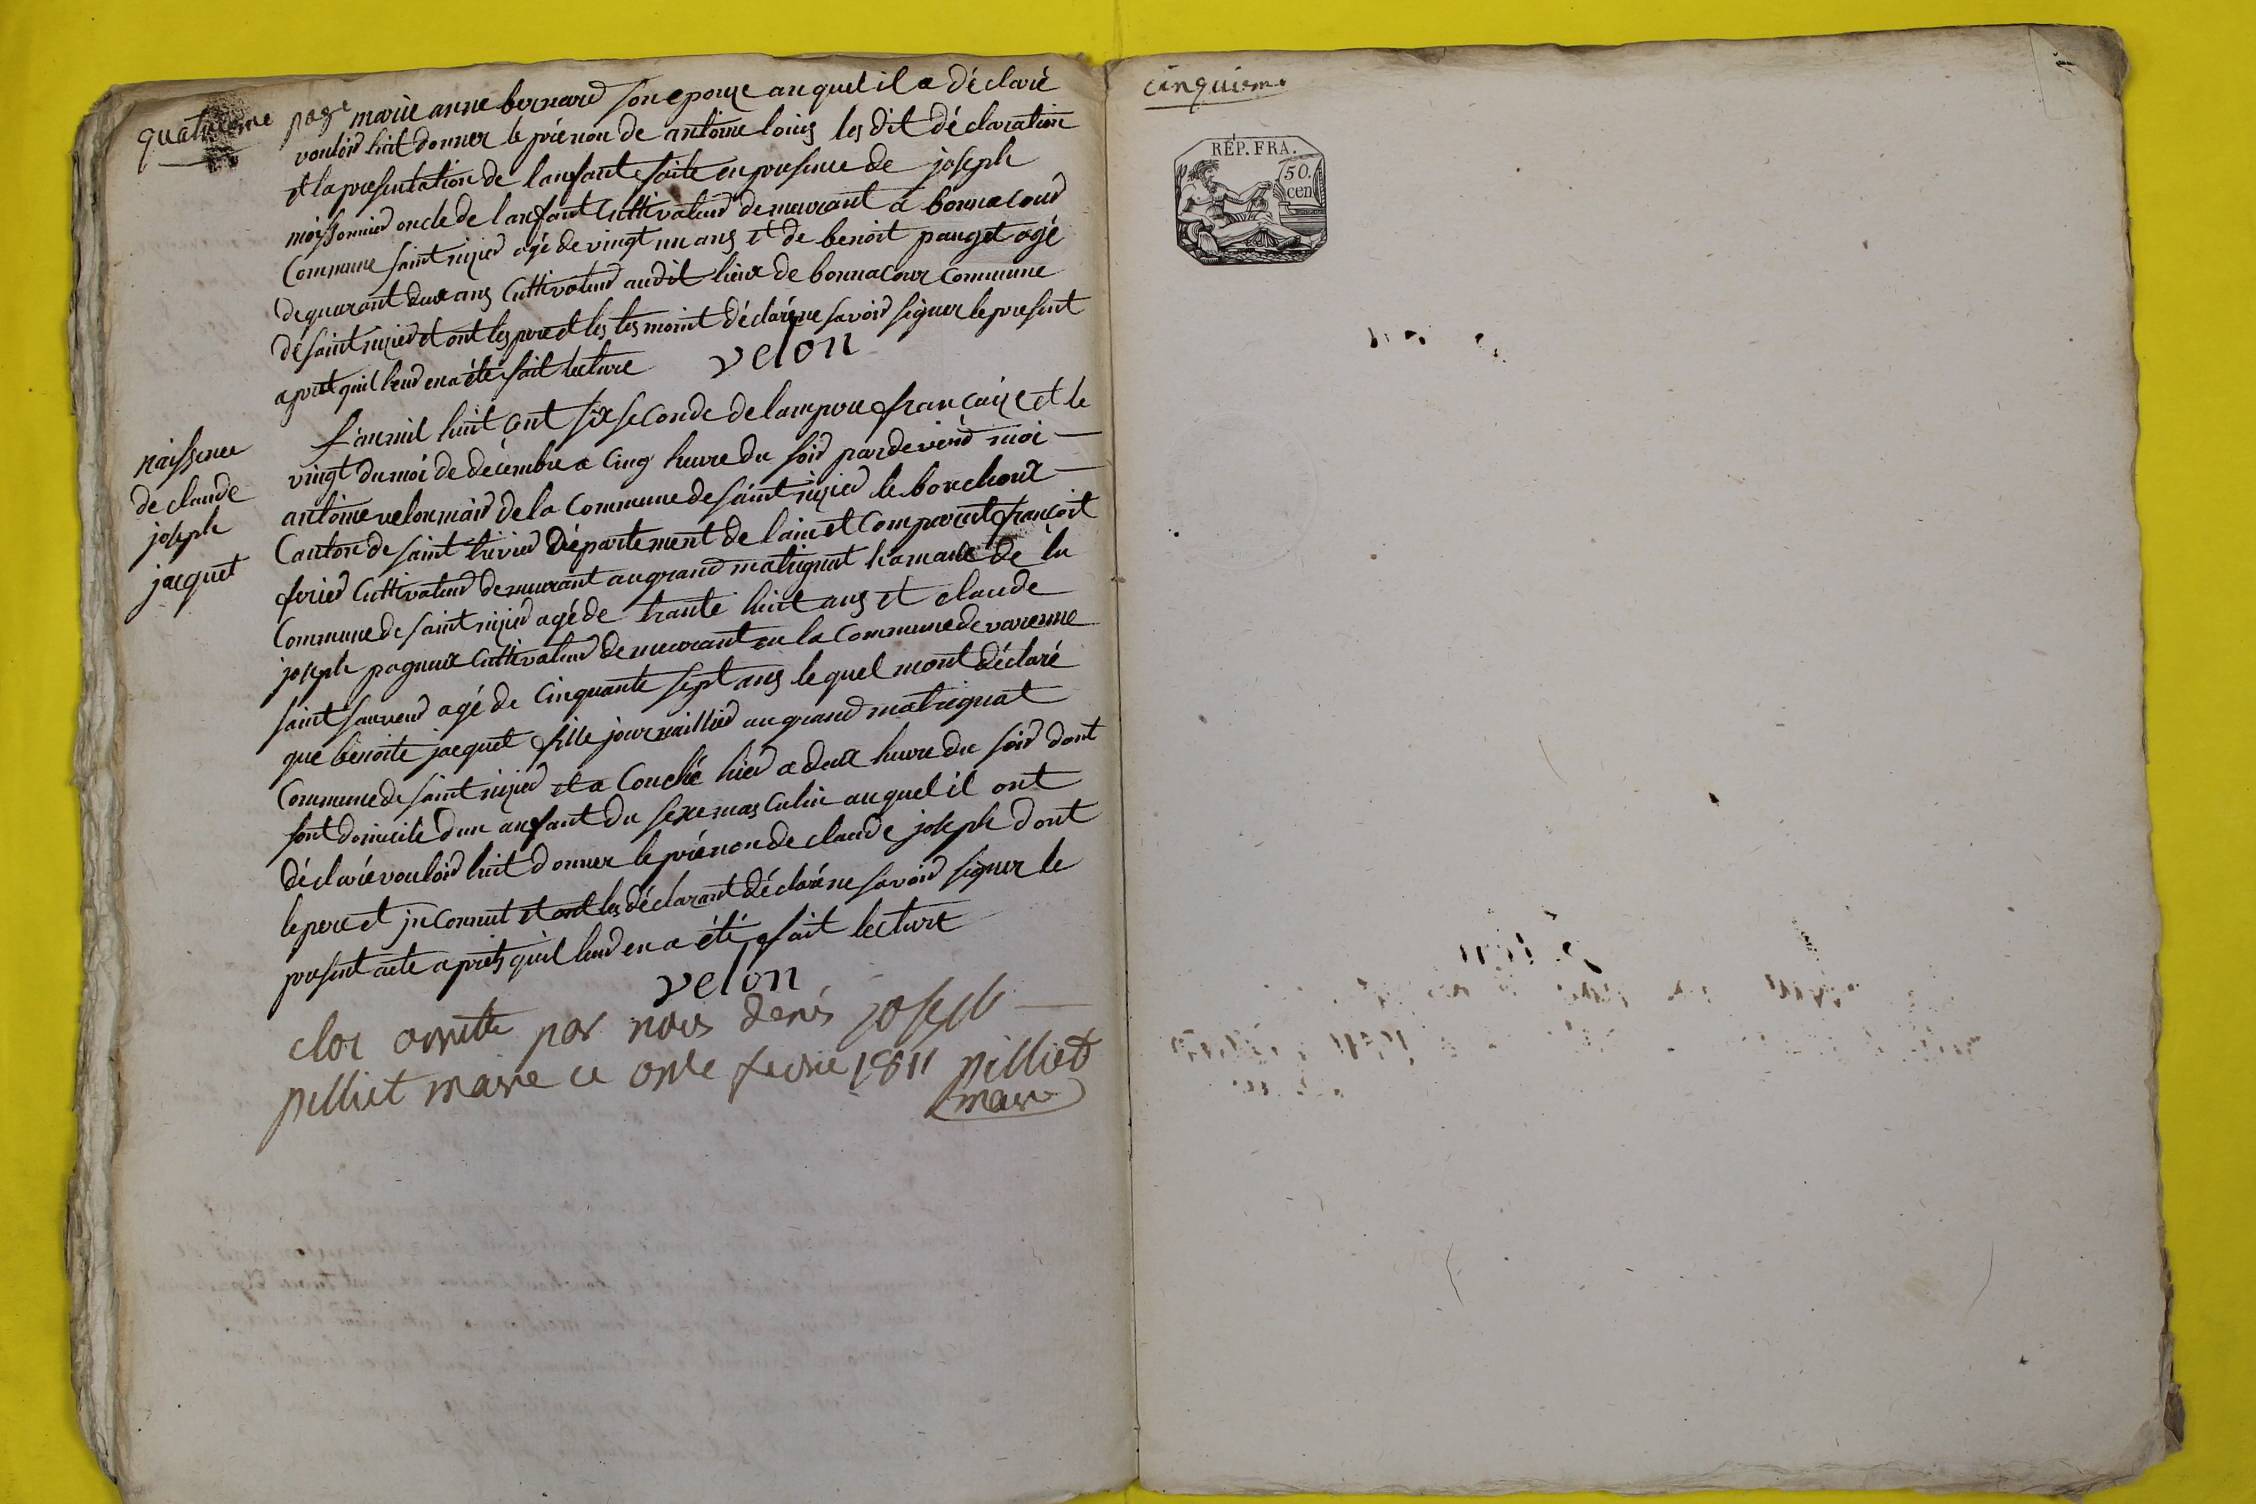 quatrieme page
marie anne bernard son epouze auquel il a déclaré
vouloir luit donner le prénon de antoine louis les dit déclaration
et la presentation de lanfant faite en presence de joseph
moissonnier oncle de lanfant cultivateur demeurant a bonnacour
Commune saint nizier agé de vingt un ans et de benoit pauget agé
de quarant deux ans cultivateur audit lieux de bonnacour commune
de saint nizier et ont les pere et les tesmoint déclaré ne savoir signer le present
apret quil leur en a été fait lecture
velon
naissence
de claude
joseph
jacquet
L'an mil huit cent six seconde de lampire française et le
vingt du moi de décembre a cinq heure du soir pardevend moi
antoine velon maire de la commune de saint nizier le bouchoux
Canton de saint trivier département de l'ain et comparut françoit
ferier cultivateur demeurant au grand matrignat hamaux de la
Commune de saint nizier agé de trante huit ans et claude
joseph pagneux cultivateur demeurant en la commune de varenne
saint sauveur agé de cinquante sept ans le quel mont déclaré
que benoite jacquet fille journaillier au grand matrignat
Commune de saint nizier et a couché hier a deux heure du soir dont
sont domicile d'un anfant du sexe masculin auquel il ont
déclaré vouloir luit donner le prénon de claude joseph dont
le pere et jnconnut et ont les déclarant déclaré ne savoir signer le
present acte aprets quil leur en a été fait lecture
velon
clos arrette par nous denis joseph
pilliet maire ce onze fevrie 1811 pilliet
maire
cinquieme
RÉP. FRA.
50.
cen